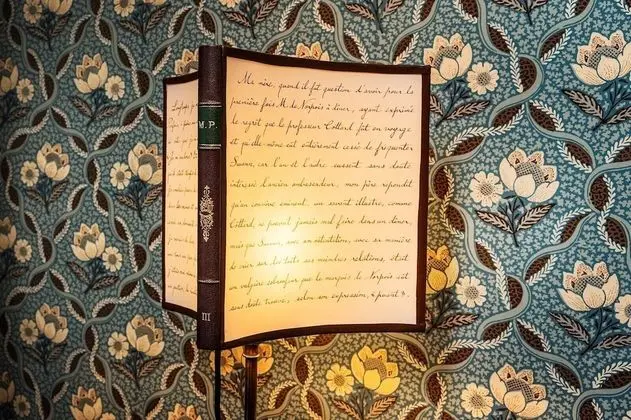 M.P.
III
Ma mère, quand il fut question d'avoir pour la
première fois M. de Norpois à dîner, ayant exprimé
le regret que le professeur Cottard fût en voyage
et qu'elle même eût entièrement cessé de fréquenter
Swann, car l'un et l'autre eussent sans doute
intéressé l'ancien ambassadeur, mon père répondit
qu'un convive éminent, un savant illustre, comme
Cottard, ne pouvait jamais mal faire dans un dîner,
mais que Swann, avec son ostentation, avec sa manière
de crier sur les toits ses moindres relations, était
un vulgaire esbroufeur que le marquis de Norpois eût
sans doute trouvé, selon son expression, "puant".